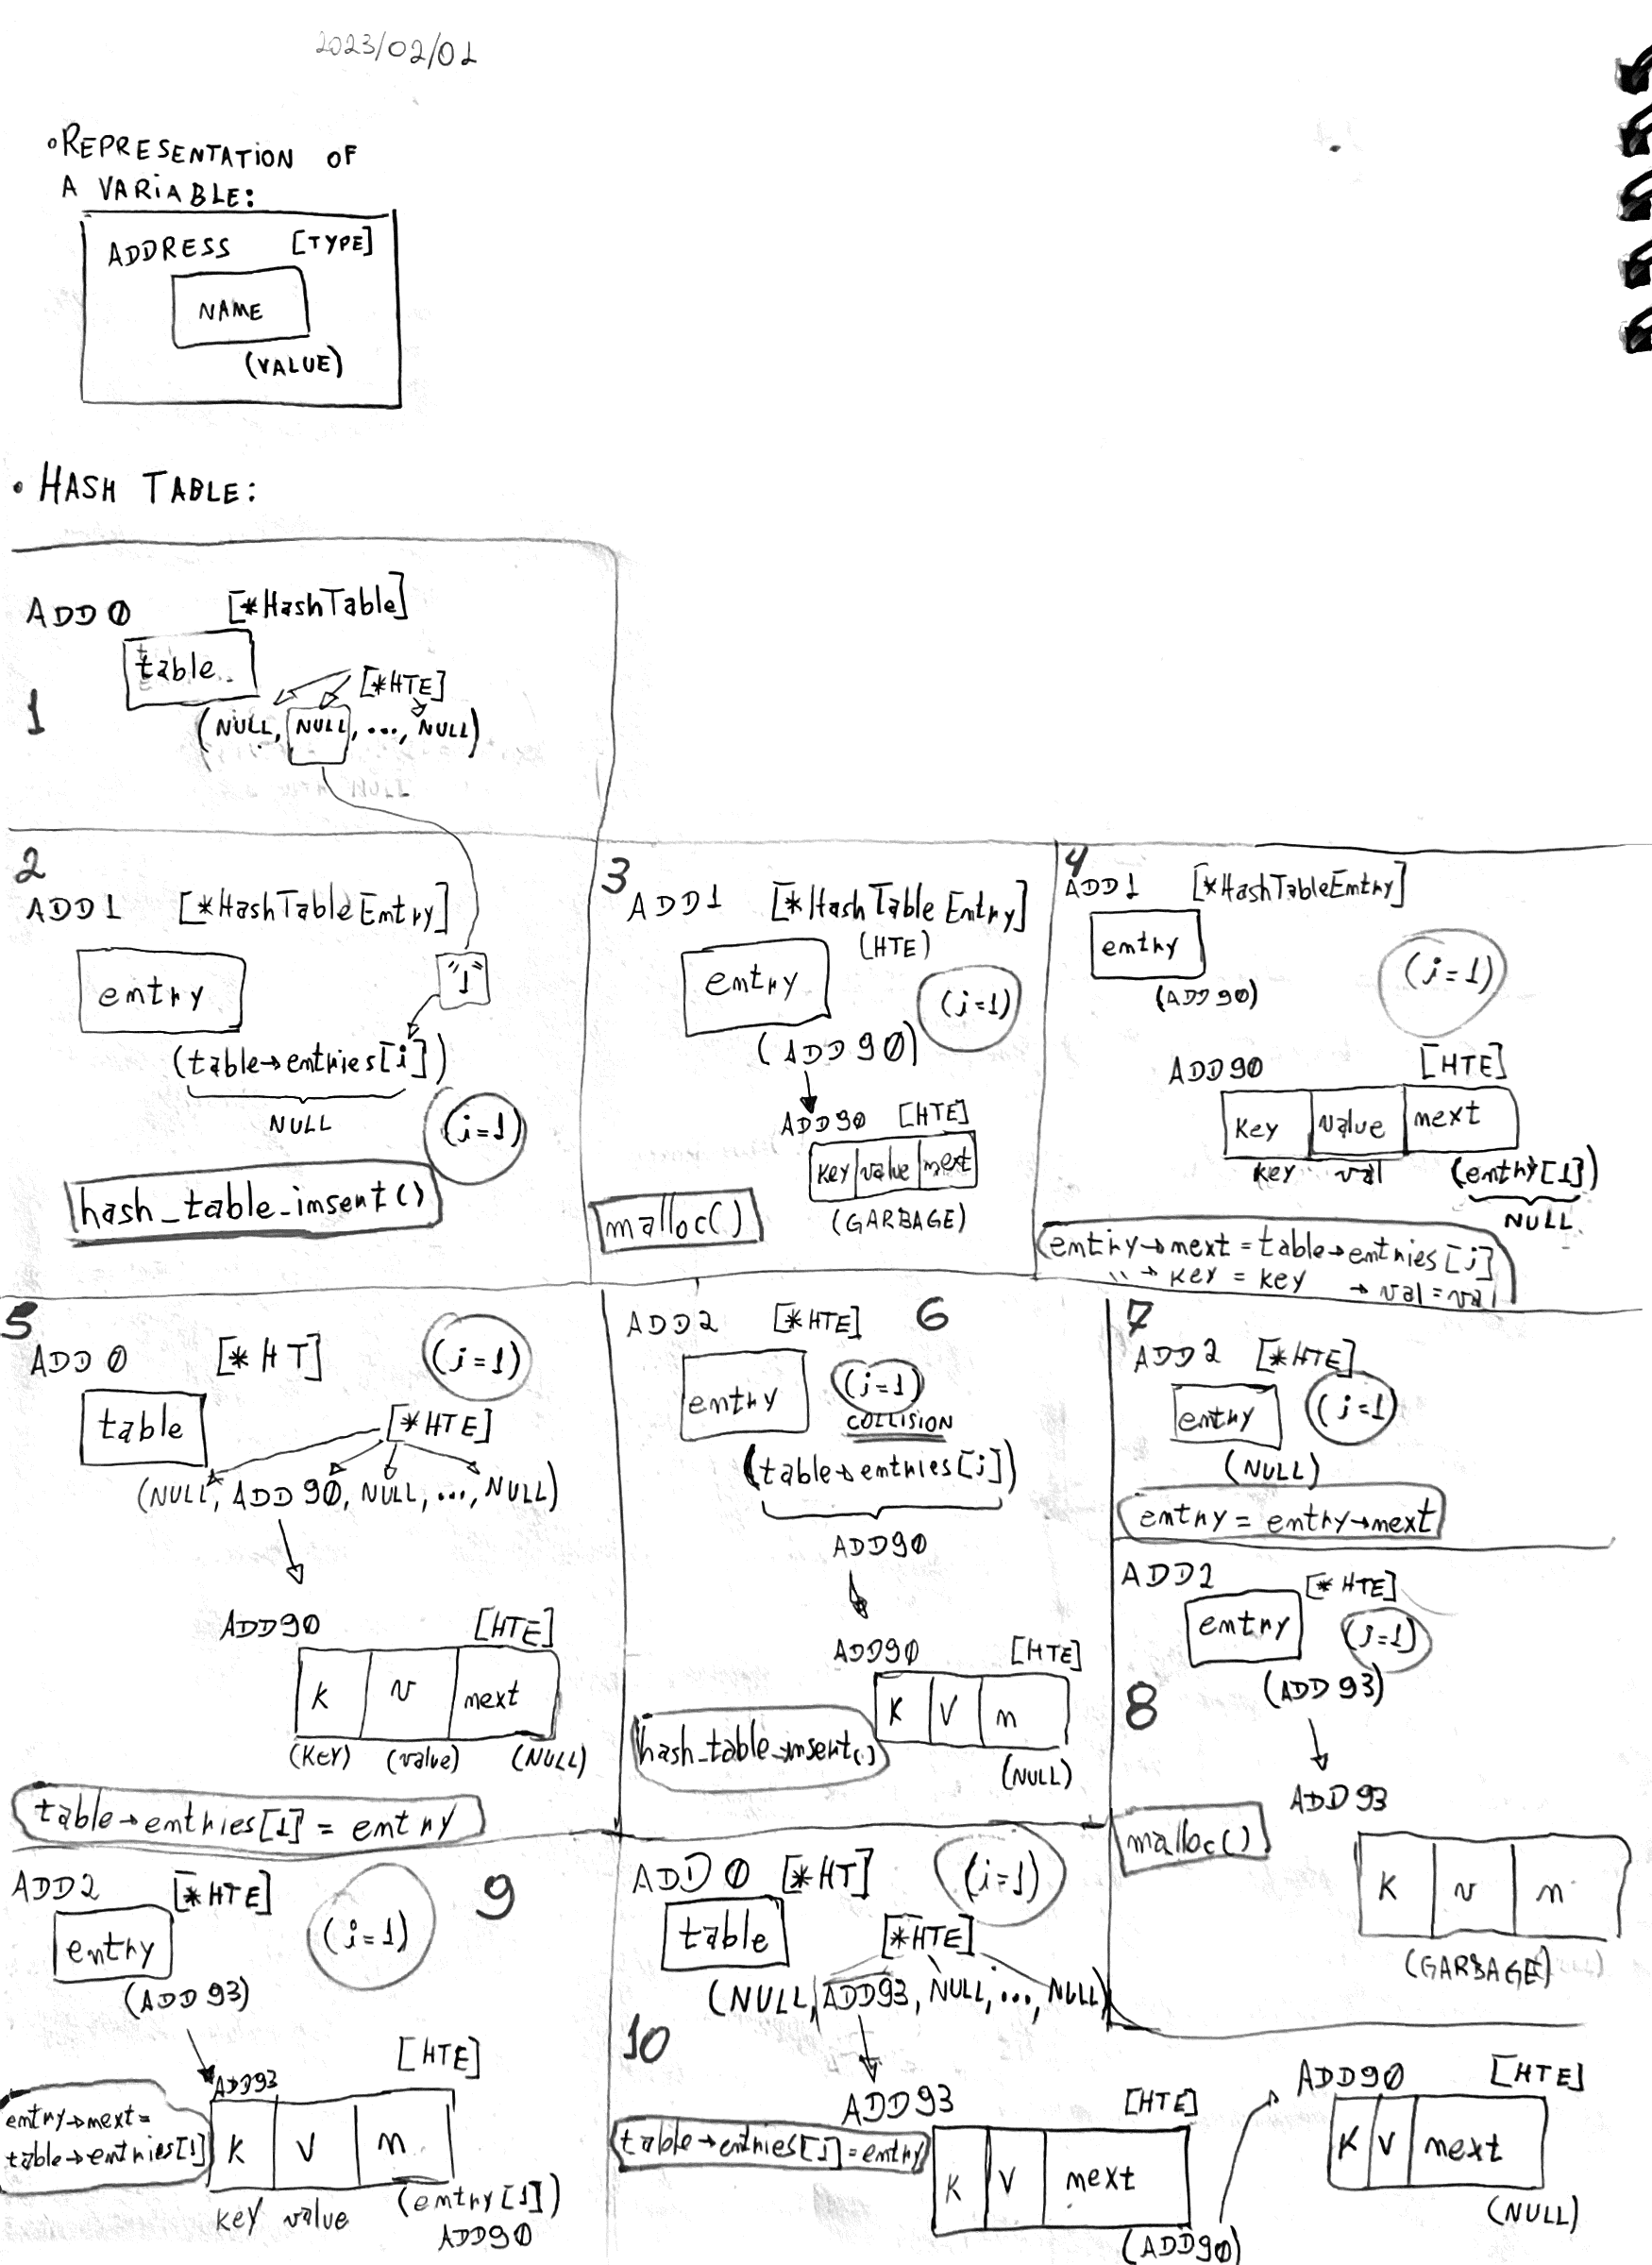 2023/02/01
• REPRESENTATION OF
A VARIABLE:
ADDRESS [TYPE]
NAME
(VALUE)
• HASH TABLE:
1
ADD0 [*HashTable]
table
[*HTE]
(NULL, NULL, ..., NULL)
2
ADD1 [*HashTableEntry]
entry
"1"
(table→entries[i])
NULL
(i=1)
hash_table_insert()
3
ADD1 [*HashTableEntry]
(HTE)
entry
(i=1)
(ADD90)
ADD90 [HTE]
key value next
(GARBAGE)
malloc()
4
ADD1 [*HashTableEntry]
entry
(i=1)
(ADD90)
ADD90 [HTE]
key value next
key val (entry[1])
NULL
entry→next = table→entries[i]
" → key = key → val = val
5
ADD0 [*HT] (i=1)
table
[*HTE]
(NULL, ADD90, NULL, ..., NULL)
ADD90 [HTE]
K v next
(key) (value) (NULL)
table→entries[1] = entry
6
ADD2 [*HTE]
entry
(i=1)
COLLISION
(table→entries[i])
ADD90
ADD90 [HTE]
K V n
(NULL)
hash_table_insert()
7
ADD2 [*HTE]
entry (i=1)
(NULL)
entry = entry→next
8
ADD2 [*HTE]
entry (i=1)
(ADD93)
ADD93
malloc()
K v n
(GARBAGE)
9
ADD2 [*HTE]
entry (i=1)
(ADD93)
[HTE]
ADD93
K V n
key value (entry[1])
ADD90
entry→next =
table→entries[1]
10
ADD0 [*HT] (i=1)
table
[*HTE]
(NULL, ADD93, NULL, ..., NULL)
ADD93 [HTE]
K V next
(ADD90)
table→entries[1] = entry
ADD90 [HTE]
K V next
(NULL)